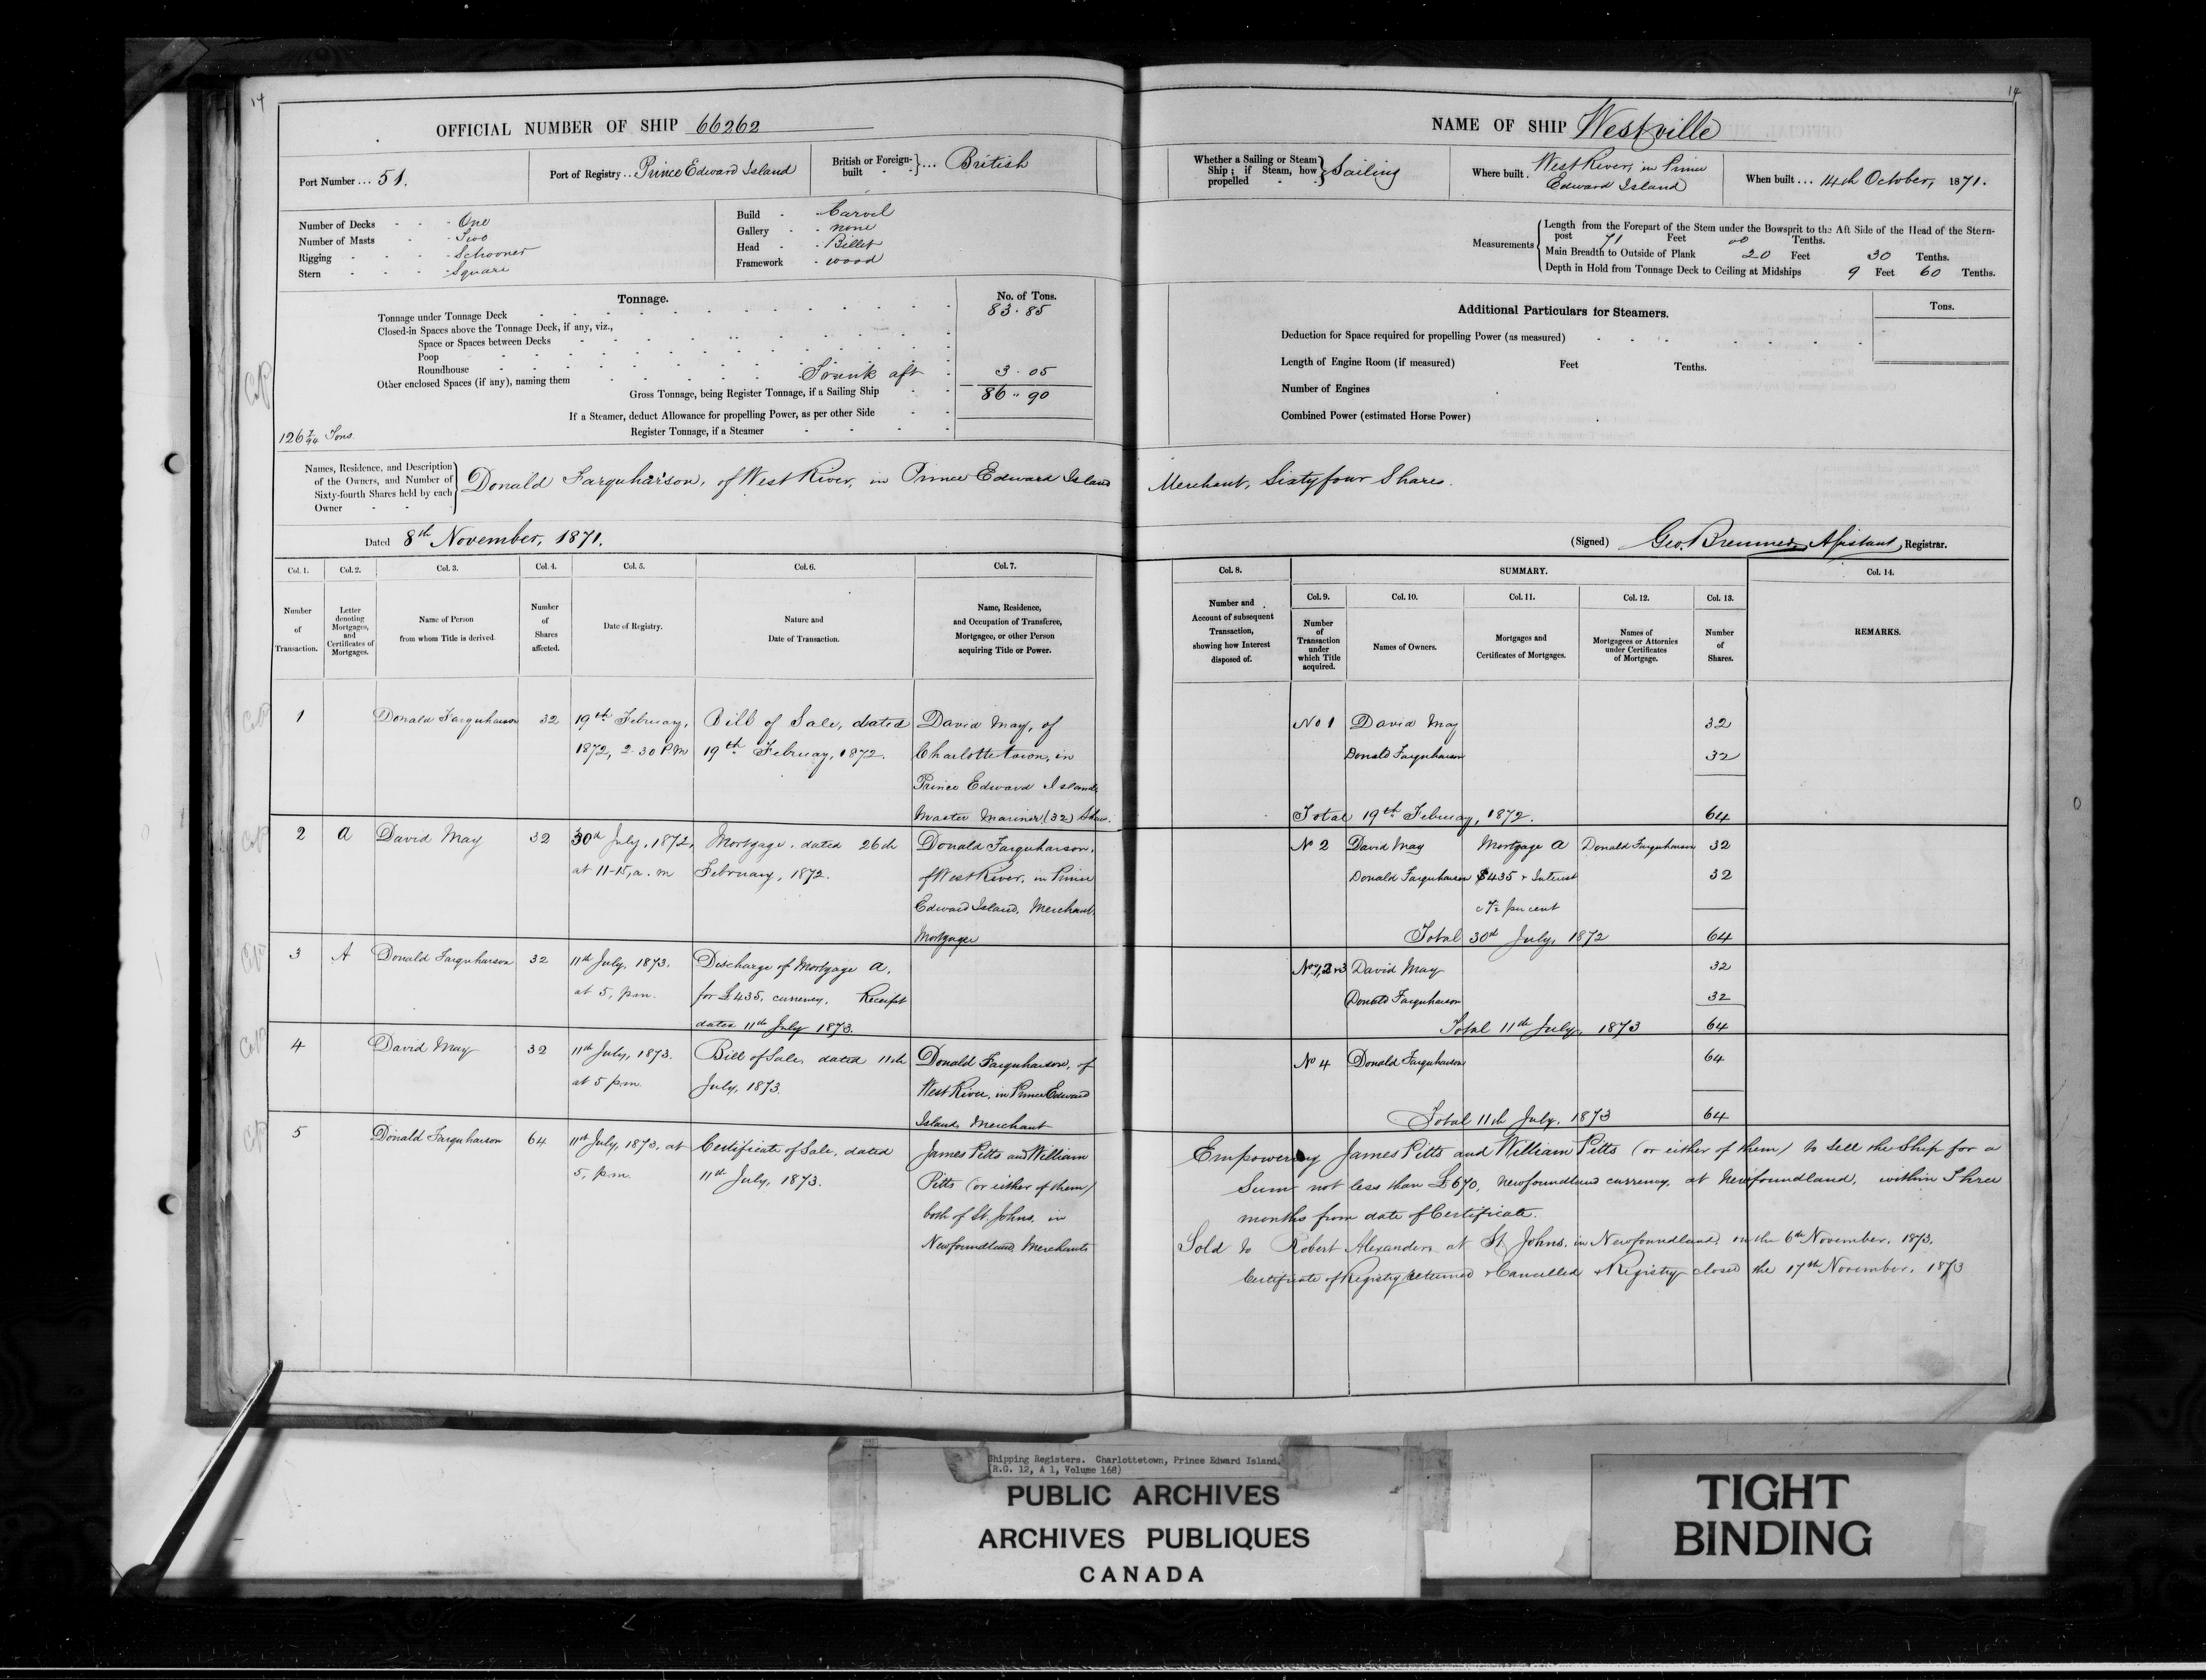 14
14
OFFICIAL NUMBER OF SHIP 66262
Port Number ... 51.
Port of Registry .. Prince Edward Island
British or Foreign-built ... British
Number of Decks - One
Number of Masts - Two
Rigging - Schooner
Stern - Square
Build - Carvel
Gallery - none
Head - Billet
Framework - wood
Tonnage.
No. of Tons.
Tonnage under Tonnage Deck 83.85
Closed-in Spaces above the Tonnage Deck, if any, viz.,
Space or Spaces between Decks
Poop
Roundhouse
Other enclosed Spaces (if any), naming them Trunk aft 3.05
Gross Tonnage, being Register Tonnage, if a Sailing Ship 86.90
If a Steamer, deduct Allowance for propelling Power, as per other Side
Register Tonnage, if a Steamer
126 7/94 Tons
NAME OF SHIP Westville
Whether a Sailing or Steam Ship; if Steam, how propelled Sailing
Where built. West River, in Prince Edward Island
When built ... 14th October, 1871.
Measurements
Length from the Forepart of the Stem under the Bowsprit to the Aft Side of the Head of the Stern-
post 71 Feet 00 Tenths.
Main Breadth to Outside of Plank 20 Feet 30 Tenths.
Depth in Hold from Tonnage Deck to Ceiling at Midships 9 Feet 60 Tenths.
Additional Particulars for Steamers.
Tons.
Deduction for Space required for propelling Power (as measured)
Length of Engine Room (if measured) Feet Tenths.
Number of Engines
Combined Power (estimated Horse Power)
Names, Residence, and Description
of the Owners, and Number of
Sixty-fourth Shares held by each
Owner
Donald Farquharson, of West River, in Prince Edward Island Merchant, Sixty four Shares.
Dated 8th November, 1871.
(Signed) Geo. Bremner, Assistant, Registrar.
Col. 1. Col. 2. Col. 3. Col. 4. Col. 5. Col. 6. Col. 7.
Number of Transaction.
Letter denoting Mortgages, and Certificates of Mortgages.
Name of Person from whom Title is derived.
Number of Shares affected.
Date of Registry.
Nature and Date of Transaction.
Name, Residence, and Occupation of Transferee, Mortgagee, or other Person acquiring Title or Power.
Col. 8. SUMMARY. Col. 14.
Col. 9. Col. 10. Col. 11. Col. 12. Col. 13.
Number and Account of subsequent Transaction, showing how Interest disposed of.
Number of Transaction under which Title acquired.
Names of Owners.
Mortgages and Certificates of Mortgages.
Names of Mortgagees or Attornies under Certificates of Mortgage.
Number of Shares.
REMARKS.
1 Donald Farquharson 32 19th February, Bill of Sale, dated David May, of
1872, 2.30 P.M 19th February, 1872. Charlottetown, in
Prince Edward Island,
Master Mariner (32) Shares.
No 1 David May 32
Donald Farquharson 32
Total 19th February, 1872. 64
2 a David May 32 30th July, 1872, Mortgage, dated 26th Donald Farquharson,
at 11-15, a.m February, 1872. of West River, in Prince
Edward Island, Merchant,
Mortgagee
No 2 David May Mortgage A Donald Farquharson 32
Donald Farquharson $435 & Interest 32
per cent
Total 30th July, 1872 64
3 A Donald Farquharson 32 11th July, 1873. Discharge of Mortgage A,
at 5, p.m. for £435, currency, Receipt
dated 11th July 1873.
No 1, 2 & 3 David May 32
Donald Farquharson 32
Total 11th July, 1873 64
4 David May 32 11th July, 1873. Bill of Sale, dated 11th Donald Farquharson, of
at 5 p.m. July, 1873. West River, in Prince Edward
Island, Merchant
No 4 Donald Farquharson 64
Total 11th July, 1873 64
5 Donald Farquharson 64 11th July, 1873, at Certificate of Sale, dated James Pitts and William
5, p.m. 11th July, 1873. Pitts (or either of them)
both of St. Johns, in
Newfoundland, Merchants
Empowering James Pitts and William Pitts (or either of them) to sell the Ship for a
Sum not less than £670, Newfoundland currency, at Newfoundland, within Three
months from date of Certificate.
Sold to Robert Alexander, at St Johns, in Newfoundland, on the 6th November, 1873.
Certificate of Registry returned & Cancelled & Registry closed the 17th November, 1873
Shipping Registers. Charlottetown, Prince Edward Island.
(R.G. 12, A 1, Volume 168)
PUBLIC ARCHIVES
ARCHIVES PUBLIQUES
CANADA
TIGHT
BINDING